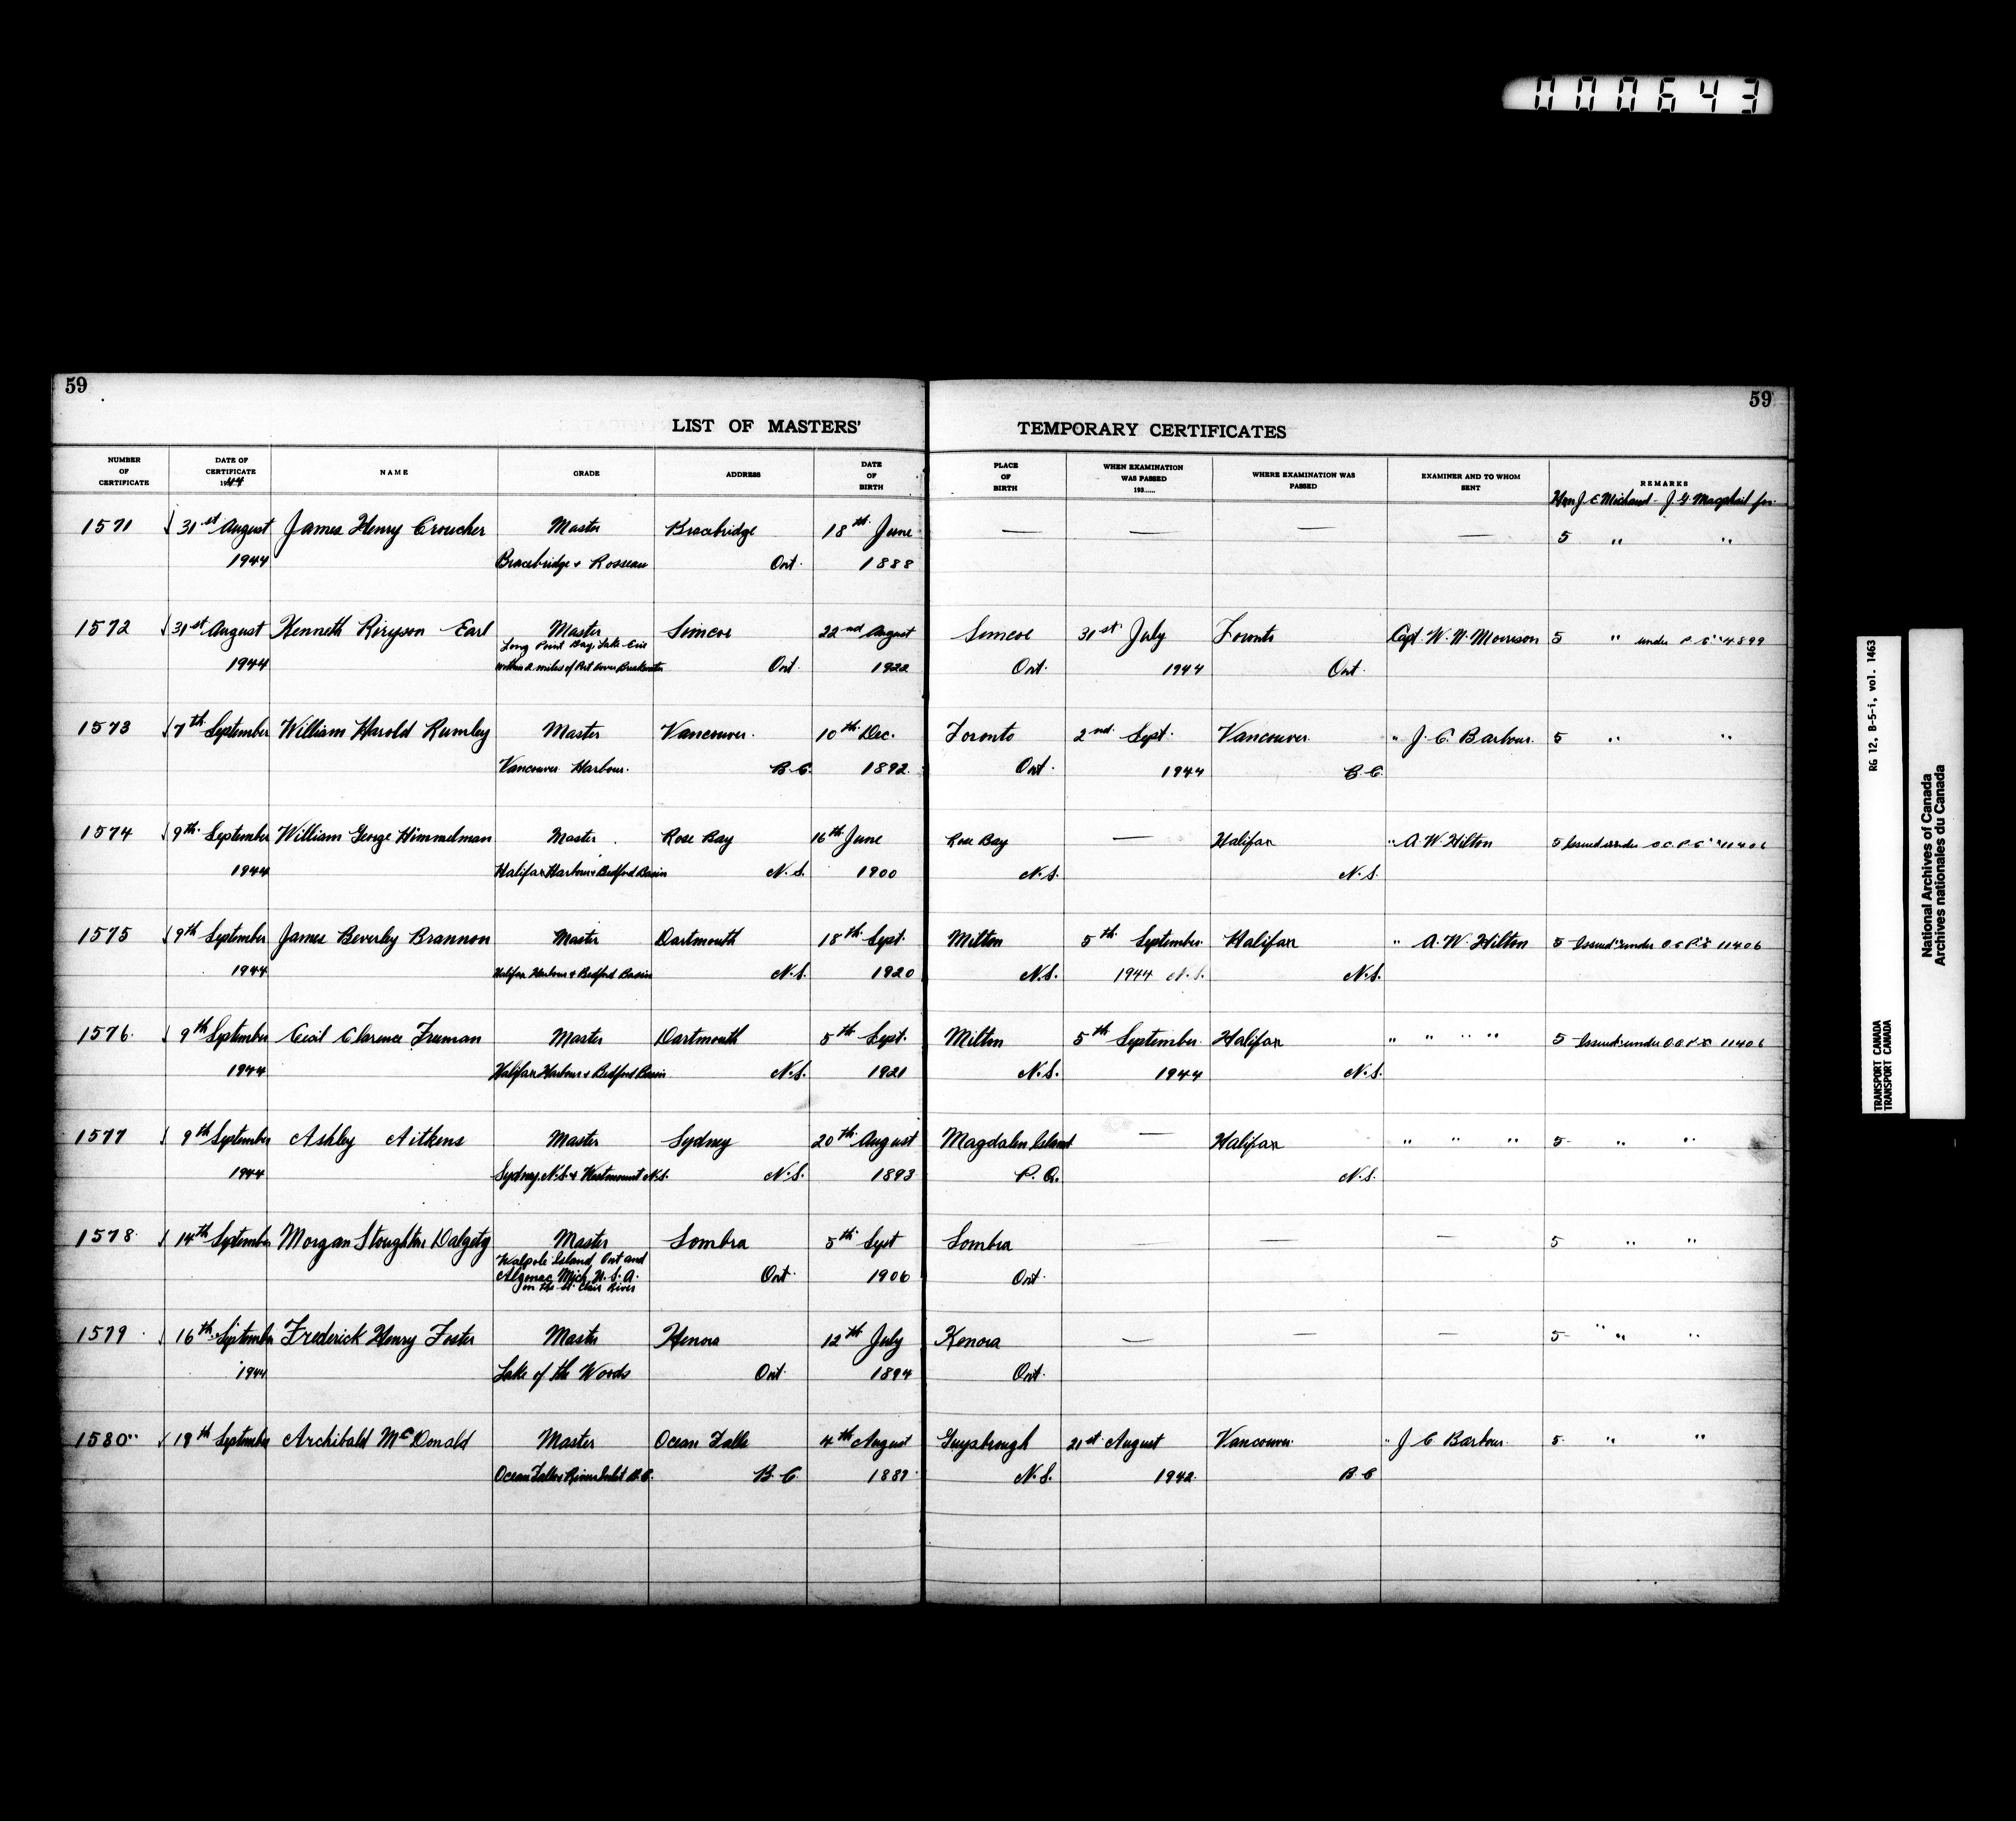 000643
59
59
LIST OF MASTERS' TEMPORARY CERTIFICATES
NUMBER OF CERTIFICATE | DATE OF CERTIFICATE 1944 | NAME | GRADE | ADDRESS | DATE OF BIRTH | PLACE OF BIRTH | WHEN EXAMINATION WAS PASSED 193...... | WHERE EXAMINATION WAS PASSED | EXAMINER AND TO WHOM SENT | REMARKS
Hon J. E. Michaud - J. G. Macphail for
1571 31st August James Henry Croucher Master Bracebridge 18th June — — — — 5 " "
1944 Bracebridge & Rosseau Ont. 1888
1572 31st August Kenneth Earl Master Simcoe 22nd August Simcoe 31st July Toronto Capt. W. N. Morrison 5 " under P.C. 4899
Long Point Bay, Lake Erie
1944 within 2 miles of Port Dover Breakwater Ont. 1922 Ont. 1944 Ont.
1573 7th September William Harold Rumley Master Vancouver. 10th Dec. Toronto 2nd Sept. Vancouver " J. C. Barbour. 5 " "
Vancouver Harbour. B.C. 1892 Ont. 1944 B.C.
1574 9th September William George Himmelman Master Rose Bay 16th June Rose Bay — Halifax " A. W. Hilton 5 Issued under O.C. P.C. 11406
1944 Halifax Harbour & Bedford Basin N.S. 1900 N.S. N.S.
1575 9th September James Beverley Brannon Master Dartmouth 18th Sept. Milton 5th September Halifax " A. W. Hilton 5 Issued under O.C. P.C. 11406
1944 Halifax Harbour & Bedford Basin N.S. 1920 N.S. 1944 N.S. N.S.
1576 9th September Cecil Clarence Freeman Master Dartmouth 5th Sept. Milton 5th September Halifax " " " " 5 Issued under O.C. P.C. 11406
1944 Halifax Harbour & Bedford Basin N.S. 1921 N.S. 1944 N.S.
1577 9th September Ashley Aitkens Master Sydney 20th August Magdalen Island — Halifax " " " 5 " "
1944 Sydney, N.S. & Westmount N.S. N.S. 1893 P.Q. N.S.
1578 14th September Morgan Stoughton Dalgety Master Sombra 5th Sept Sombra — — — 5 " "
Walpole Island, Ont and
Algonac Mich, U.S.A. Ont. 1906 Ont.
on the St. Clair River
1579 16th September Frederick Henry Foster Master Kenora 12th July Kenora — — — 5 " " "
1944 Lake of the Woods Ont. 1894 Ont.
1580 19th September Archibald McDonald Master Ocean Falls 4th August Guysborough 21st August Vancouver " J. C. Barbour 5 " "
Ocean Falls & Rivers Inlet B.C. B.C. N.S. 1942 B.C.
RG 12, B-5-i, vol. 1463
TRANSPORT CANADA
TRANSPORT CANADA
National Archives of Canada
Archives nationales du Canada